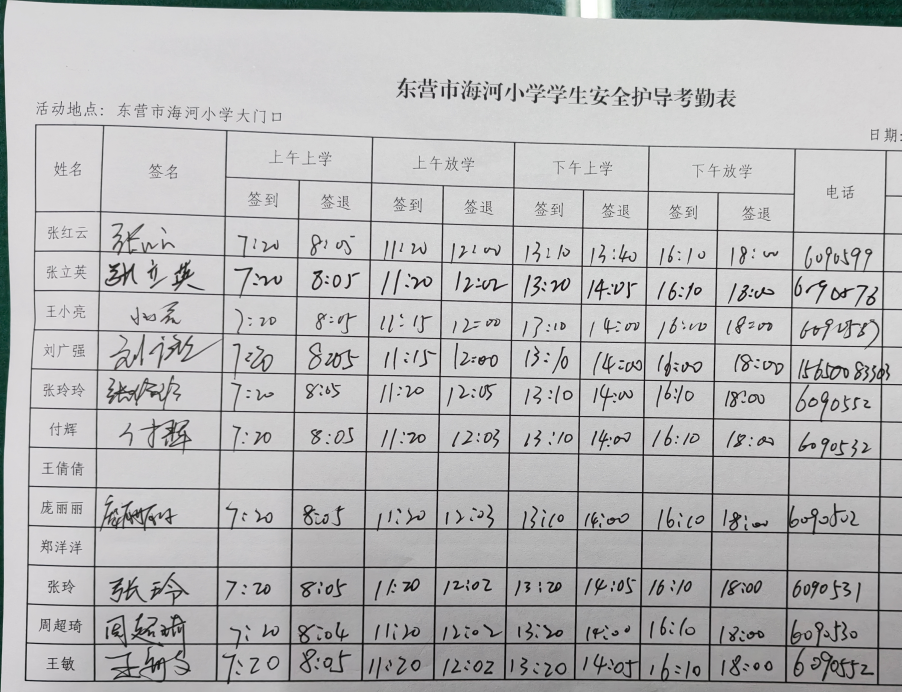 东营市海河小学学生安全护导考勤表
活动地点：东营市海河小学大门口
日期:
姓名 签名 上午上学 上午放学 下午上学 下午放学 电话
签到 签退 签到 签退 签到 签退 签到 签退
张红云 7:20 8:05 11:20 12:00 13:10 13:40 16:10 18:00 6090599
张立英 张立英 7:20 8:05 11:20 12:02 13:20 14:05 16:10 18:00
王小亮 小亮 7:20 8:05 11:15 12:00 13:10 14:00 16:00 18:00
刘广强 7:20 8:05 11:15 12:00 13:10 14:00 16:00 18:00
张玲玲 张玲玲 7:20 8:05 11:20 12:05 13:10 14:00 16:10 18:00 6090552
付辉 付辉 7:20 8:05 11:20 12:03 13:10 14:00 16:10 18:00 6090532
王倩倩
庞丽丽 庞丽丽 7:20 8:05 11:20 12:03 13:10 14:00 16:10 18:00 6090502
郑洋洋
张玲 张玲 7:20 8:05 11:20 12:02 13:20 14:05 16:10 18:00 6090531
周超琦 周超琦 7:20 8:04 11:20 12:02 13:20 14:00 16:10 18:00 6090530
王敏 王敏 7:20 8:05 11:20 12:02 13:20 14:05 16:10 18:00 6090552